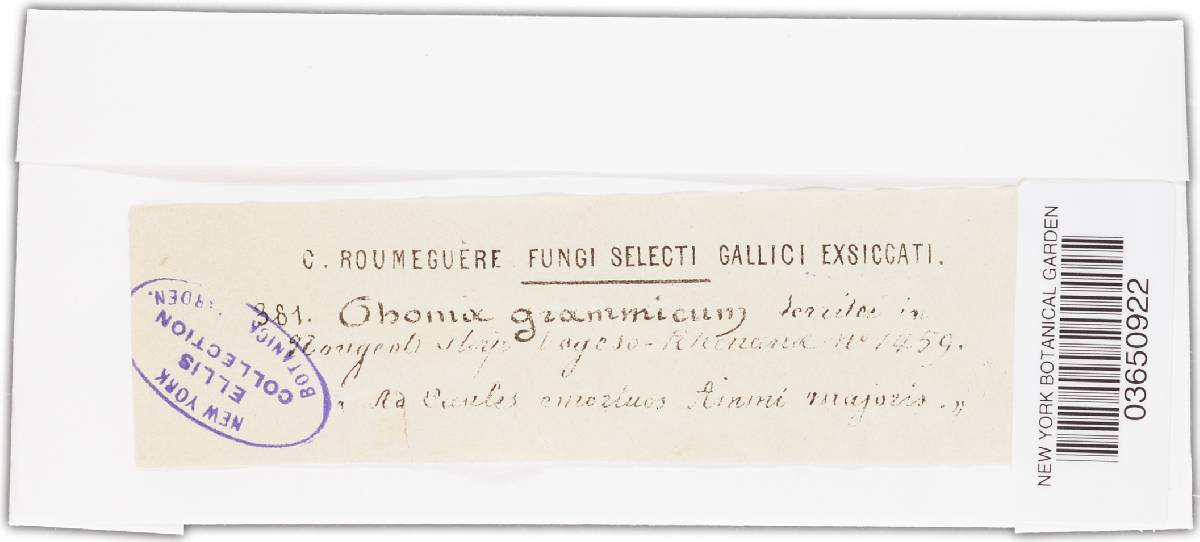 C. ROUMEGUÈRE FUNGI SELECTI GALLICI EXSICCATI.
381. Phoma grammicum in
Mougeot Stirp. Vogeso-Rhenanæ No 1459.
" Ad Caules emortuos Ammi majoris. "
NEW YORK
ELLIS
COLLECTION
BOTANICA RDEN.
NEW YORK BOTANICAL GARDEN
03650922